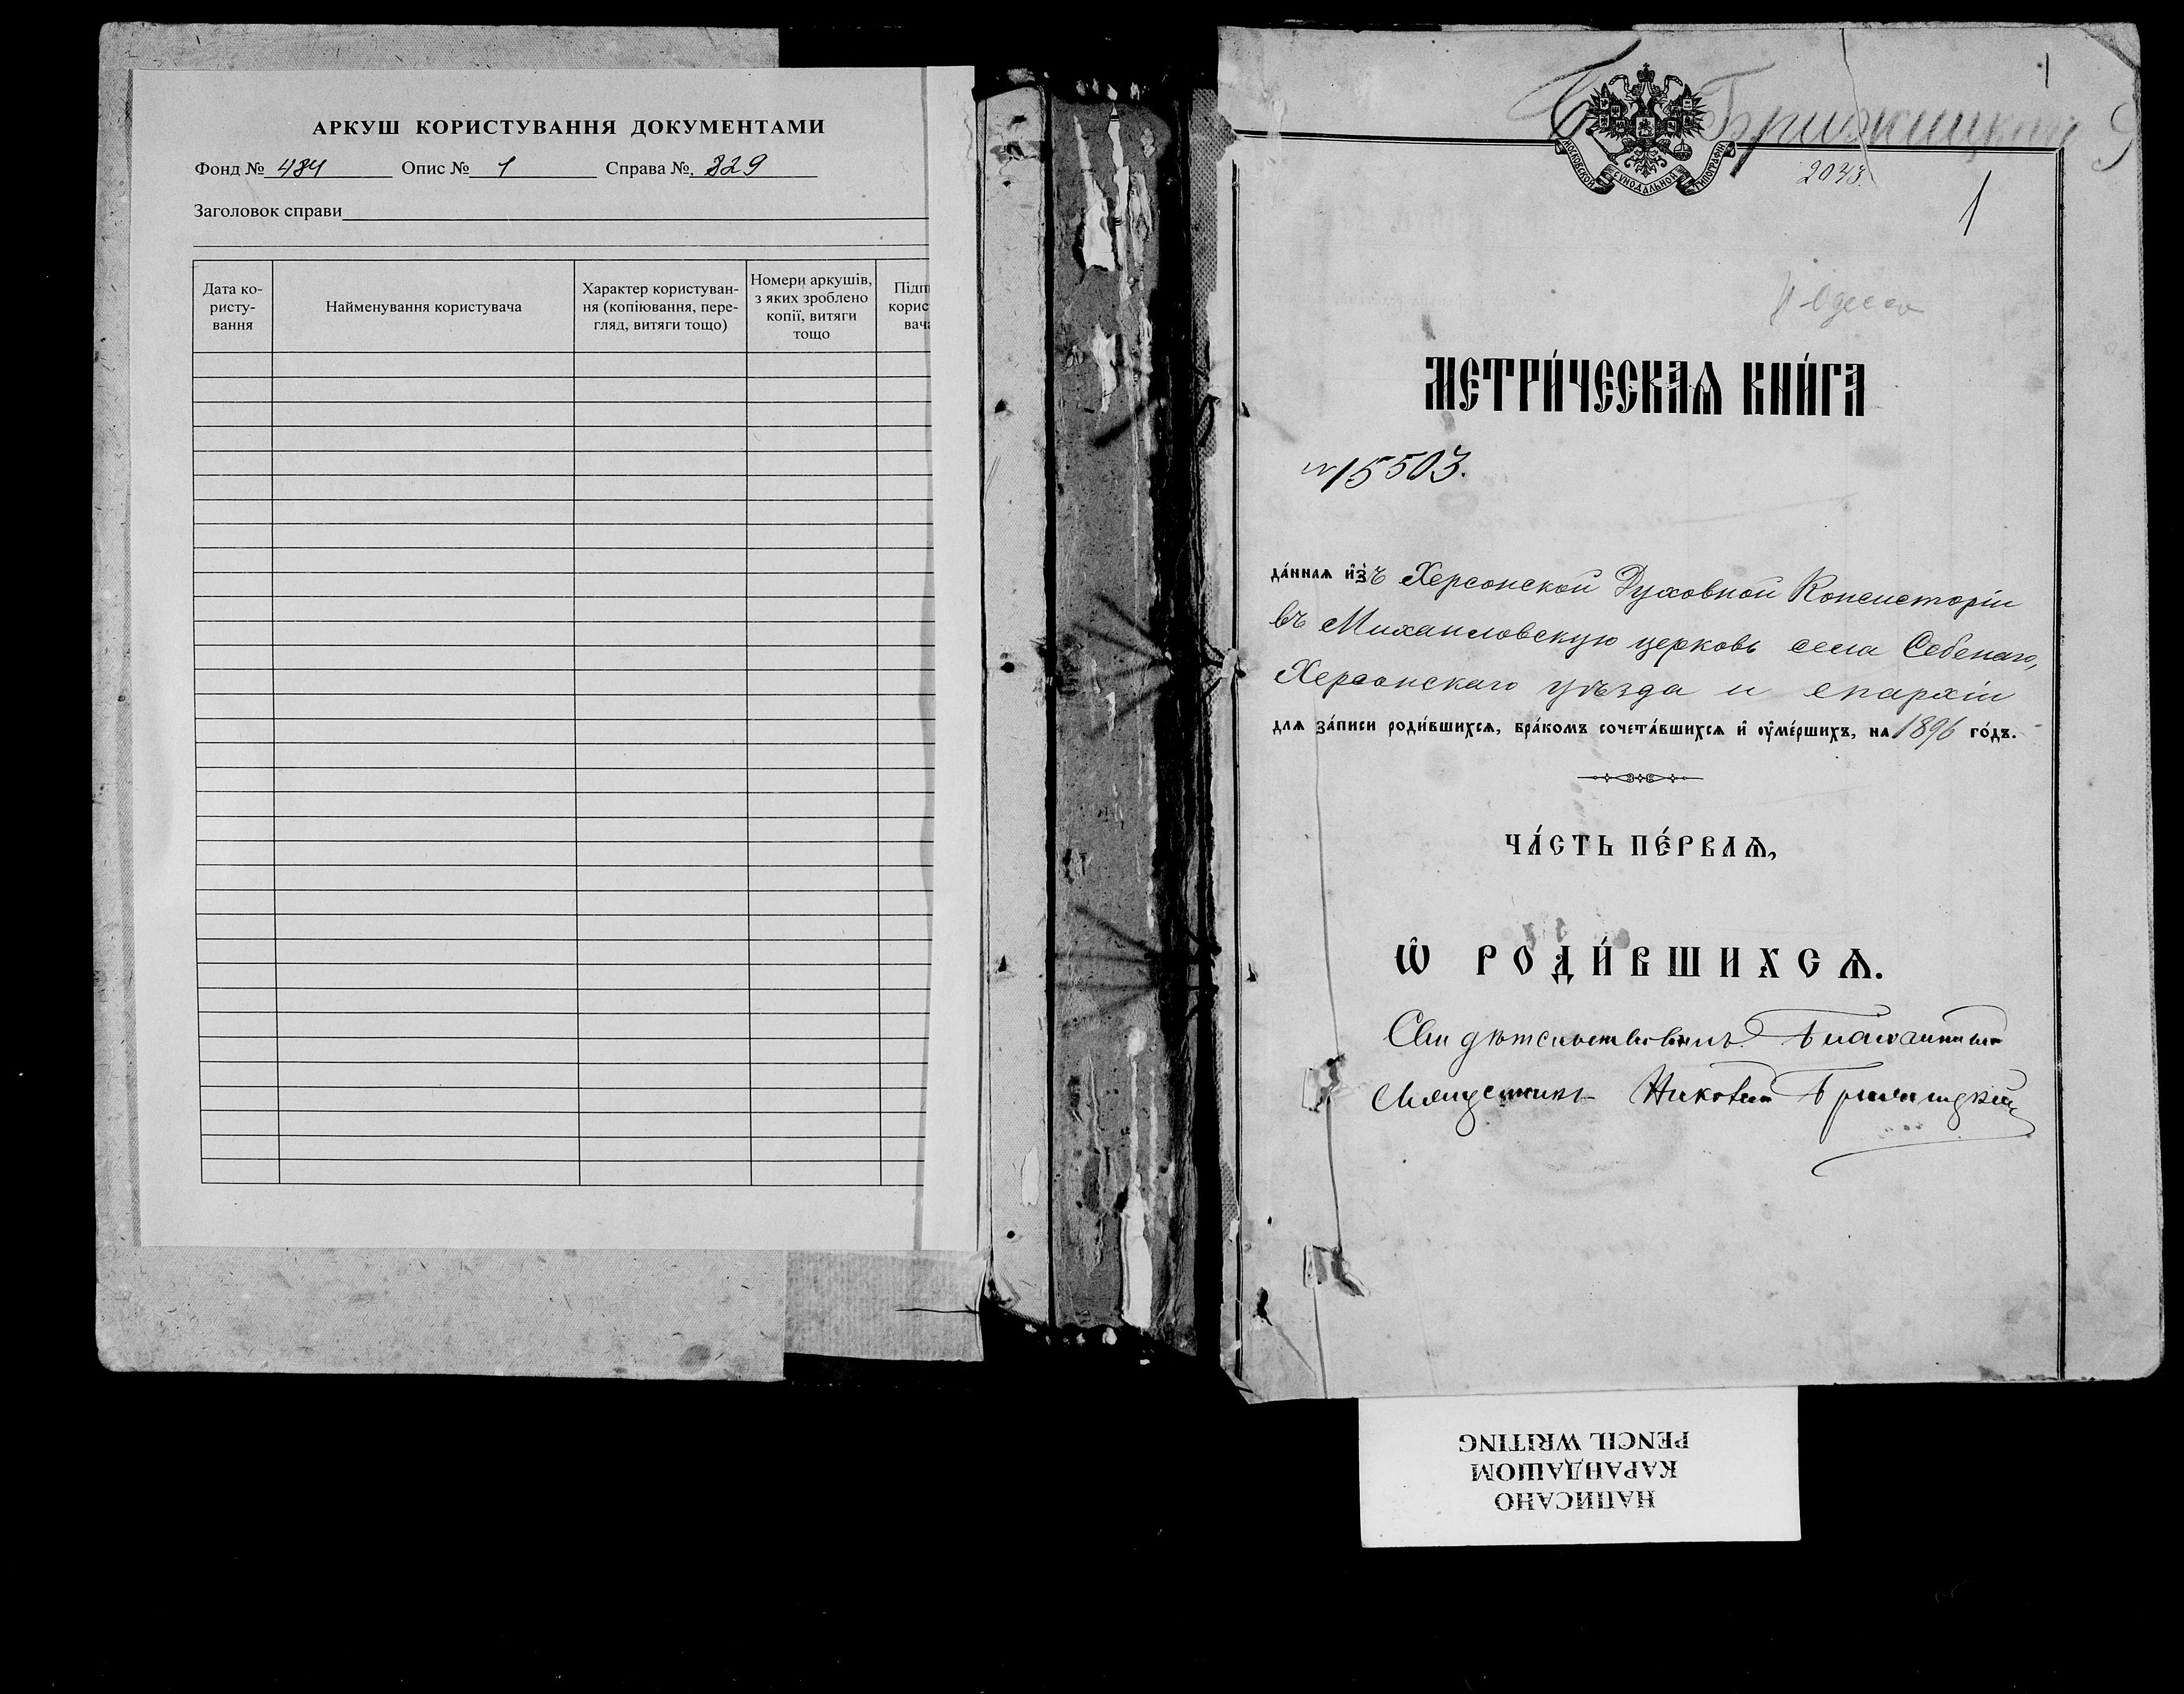 АРКУШ КОРИСТУВАННЯ ДОКУМЕНТАМИ
Фонд № 484 Опис № 1 Справа № 829
Заголовок справи
Дата ко-
ристу-
вання
Найменування користувача
Характер користуван-
ня (копіювання, пере-
гляд, витяги тощо)
Номери аркушів,
з яких зроблено
копії, витяги
тощо
Підп
корис
вача
1
МОСКОВСКОЙ СѴНОДАЛЬНОЙ ТИПОГРАФІИ
2043
1
МЕТРИ́ЧЕСКАѦ КНИ́ГА
№ 15503.
да́ннаѧ и҆зъ Херсонской Духовной Консисторіи
въ Михаиловскую церковь села Себенаго,
Херсонскаго уѣзда и епархіи
для за́писи роди́вшихсѧ, бра́комъ сочета́вшихсѧ и҆ оу҆ме́ршихъ, на 1896 го́дъ.
ЧА́СТЬ ПЕ́РВАѦ,
Ѡ҆ РОДИ́ВШИХСѦ.
Свидѣтельствовалъ Благочинный
Священникъ
НАПИСАНО
КАРАНДАШОМ
PENCIL WRITING